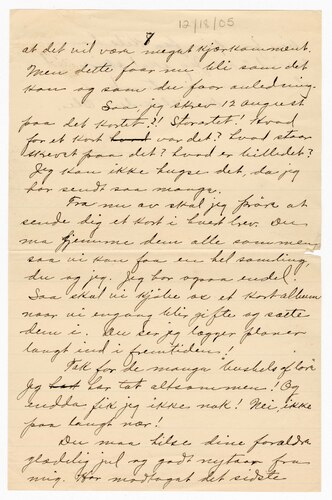 12/18/05
7
at det vil være meget kjærkomment.
Men dette faar nu bli som det
kan og som du faar anledning.
Saa, jeg skrev 12 august
paa det kortet?! Storartet! Hvad
for et kort var det? hvad staar
skrevet paa det? hvad er billedet?
Jeg kan ikke hugse det, da jeg
har sendt saa mange.
Fra nu av skal jeg prøve at
sende dig et kort i hvert brev. Du
maa gjemme dem alle sammen
saa vi kan faa en hel samling,
du og jeg. Jeg har ogsaa endel!
Saa skal vi kjøbe os et kort album
naar vi engang blir gifte og sætte
dem i. Du ser jeg lægger planer
langt ind i fremtiden!
Tak for de mange bushels of love
Jeg har tat altsammen! Og
endda fik jeg ikke nok! Nei, ikke
paa langt nær!
Du maa hilse dine forældre
glædelig jul og godt nytaar fra
mig. Har modtaget det sidste